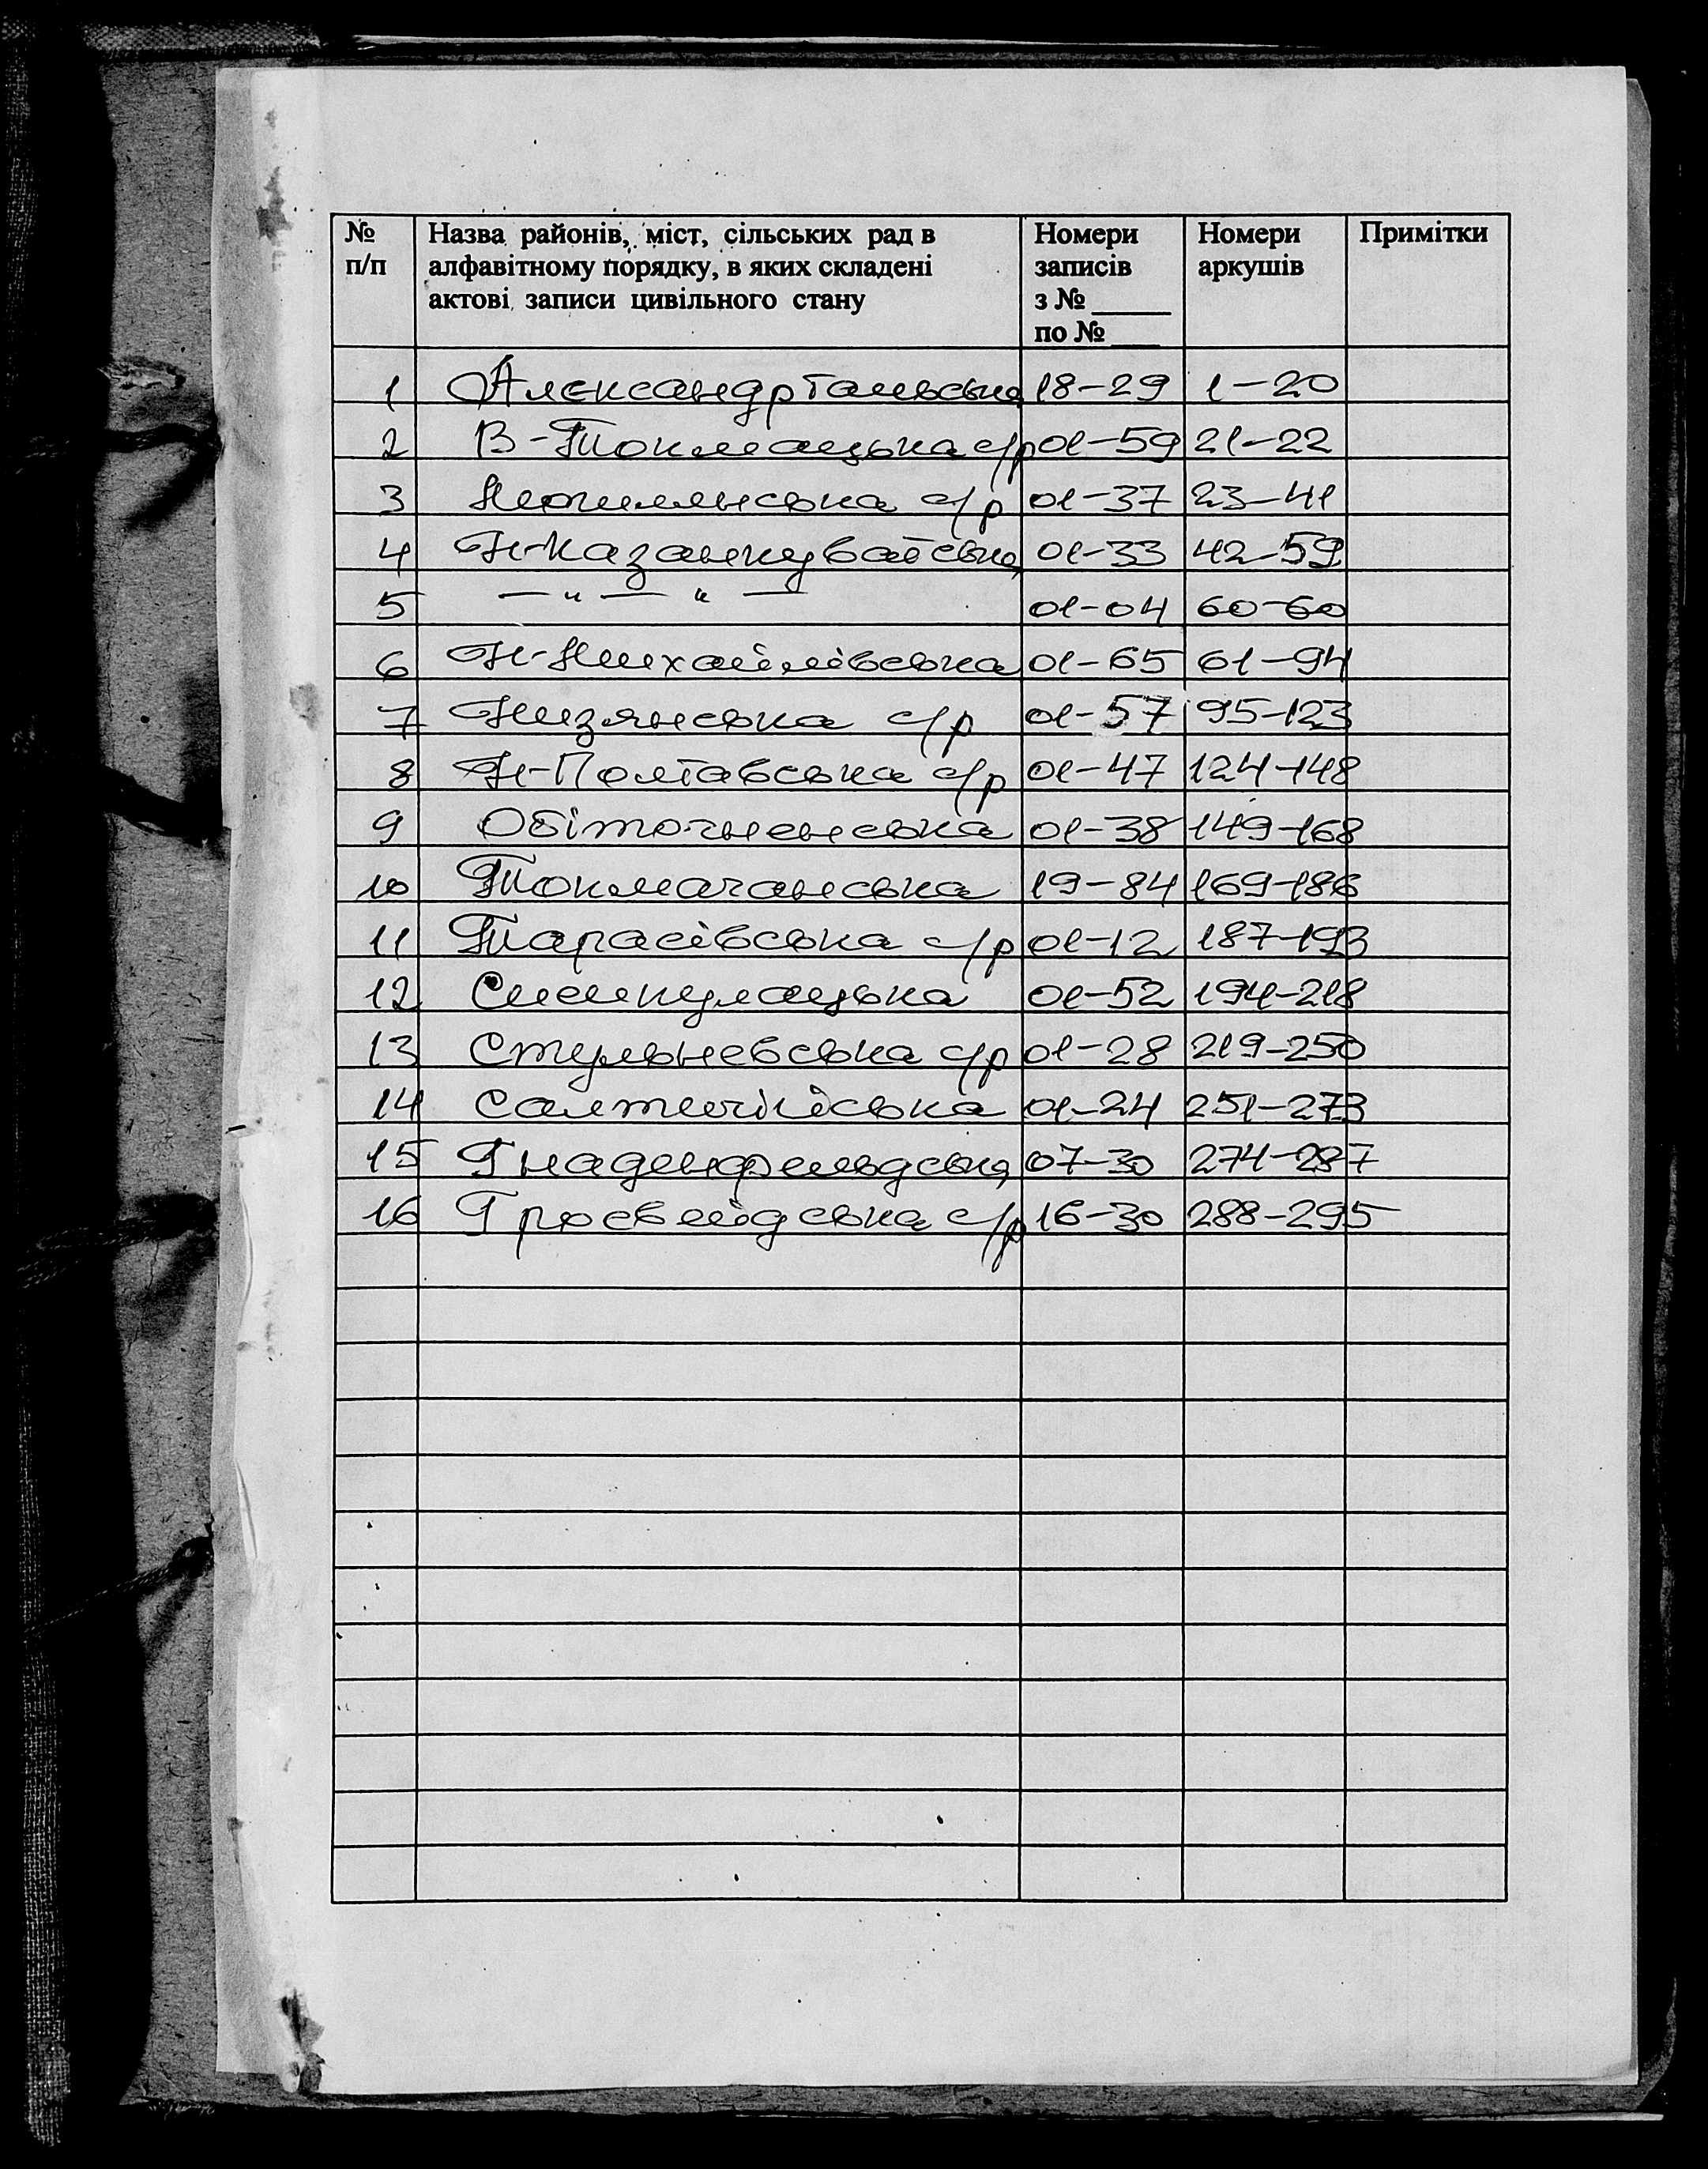 № п/п | Назва районів, міст, сільських рад в алфавітному порядку, в яких складені актові записи цивільного стану | Номери записів з № _____ по № ___ | Номери аркушів | Примітки
1 Александртальська 18-29 1-20
2 В-Токмацька с/р 01-59 21-22
3 с/р 01-37 23-41
4 Н-Казанкуватська 01-33 42-59
5 — " — " — 01-04 60-60
6 Н-Михайлівська 01-65 61-94
7 Низянська с/р 01-57 95-123
8 Н-Полтавська с/р 01-47 124-148
9 Обіточненська 01-38 149-168
10 Токмачанська 19-84 169-186
11 Тарасівська с/р 01-12 187-193
12 01-52 194-218
13 Стульневська с/р 01-28 219-250
14 Салтичійська 01-24 251-273
15 Гнаденфельдська 07-30 274-287
16 Гросвейдська с/р 16-30 288-295